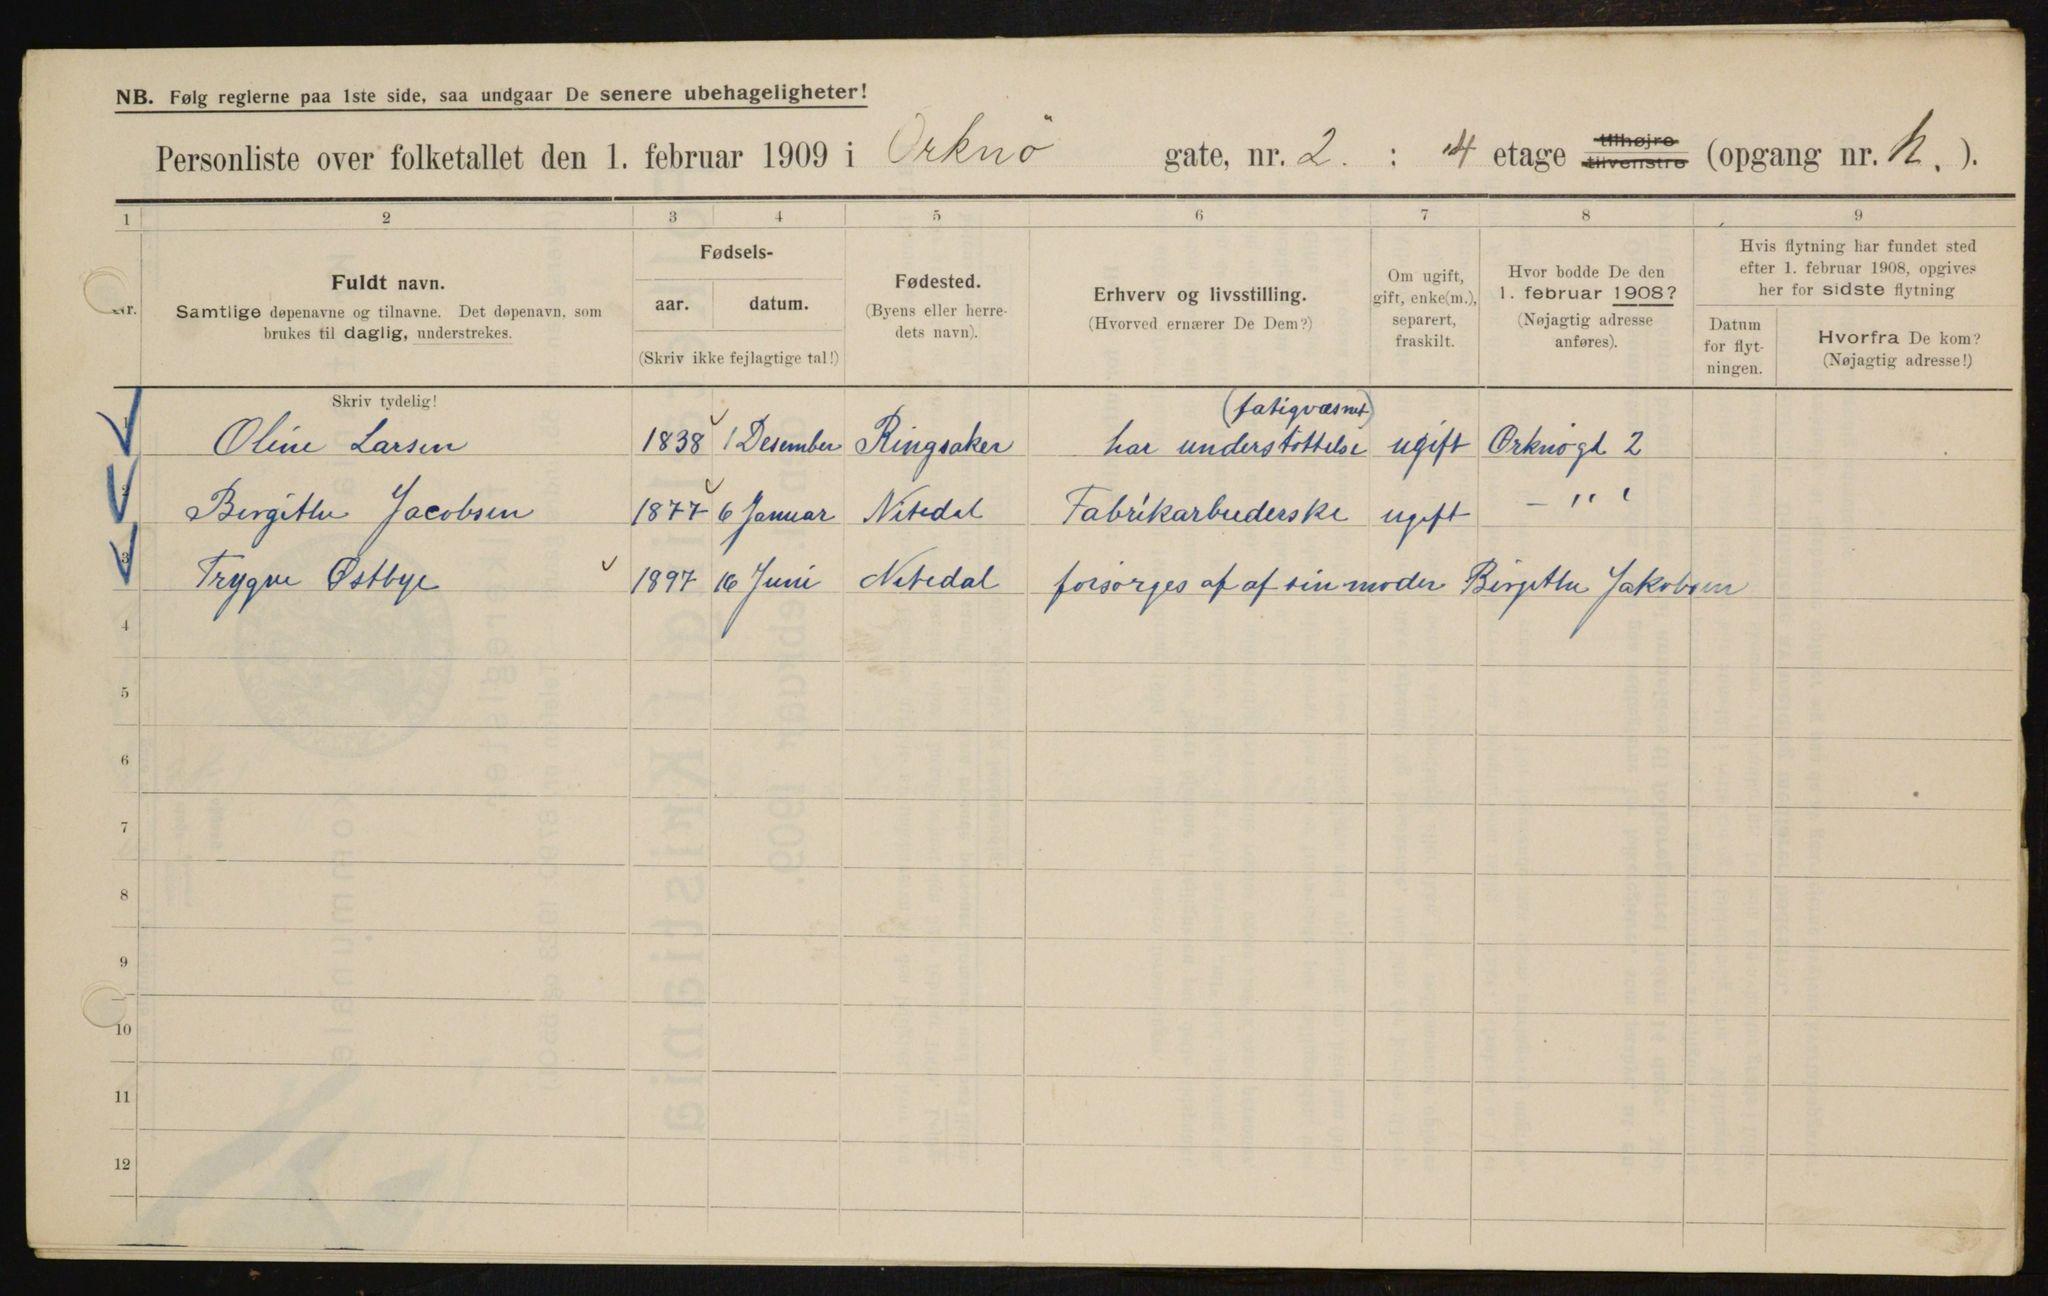 NB. Følg reglerne paa 1ste side, saa undgaar De senere ubehageligheter!
Personliste over folketallet den 1. februar 1909 i Orknö gate, nr. 2. : 4 etage tilhøjre tilvenstre (opgang nr. h.).
1 2 3 4 5 6 7 8 9
Nr.
Fuldt navn.
Samtlige døpenavne og tilnavne. Det døpenavn, som
brukes til daglig, understrekes.
Fødsels-
aar. datum.
(Skriv ikke fejlagtige tal!)
Fødested.
(Byens eller herre-
dets navn).
Erhverv og livsstilling.
(Hvorved ernærer De Dem?)
Om ugift,
gift, enke(m.),
separert,
fraskilt.
Hvor bodde De den
1. februar 1908?
(Nøjagtig adresse
anføres).
Hvis flytning har fundet sted
efter 1. februar 1908, opgives
her for sidste flytning
Datum
for flyt-
ningen.
Hvorfra De kom?
(Nøjagtig adresse!)
Skriv tydelig!
(fatigvæsnet)
1 Oline Larsen 1838 1 Desember Ringsaker har understöttelse ugift Orknögt 2
2 Birgithe Jacobsen 1877 6 Januar Nitedal Fabrikarbeiderske ugift — " "
3 Trygve Østbye 1897 16 Juni Nitedal forsørges af af sin moder Birgithe Jakobsen
4
5
6
7
8
9
10
11
12